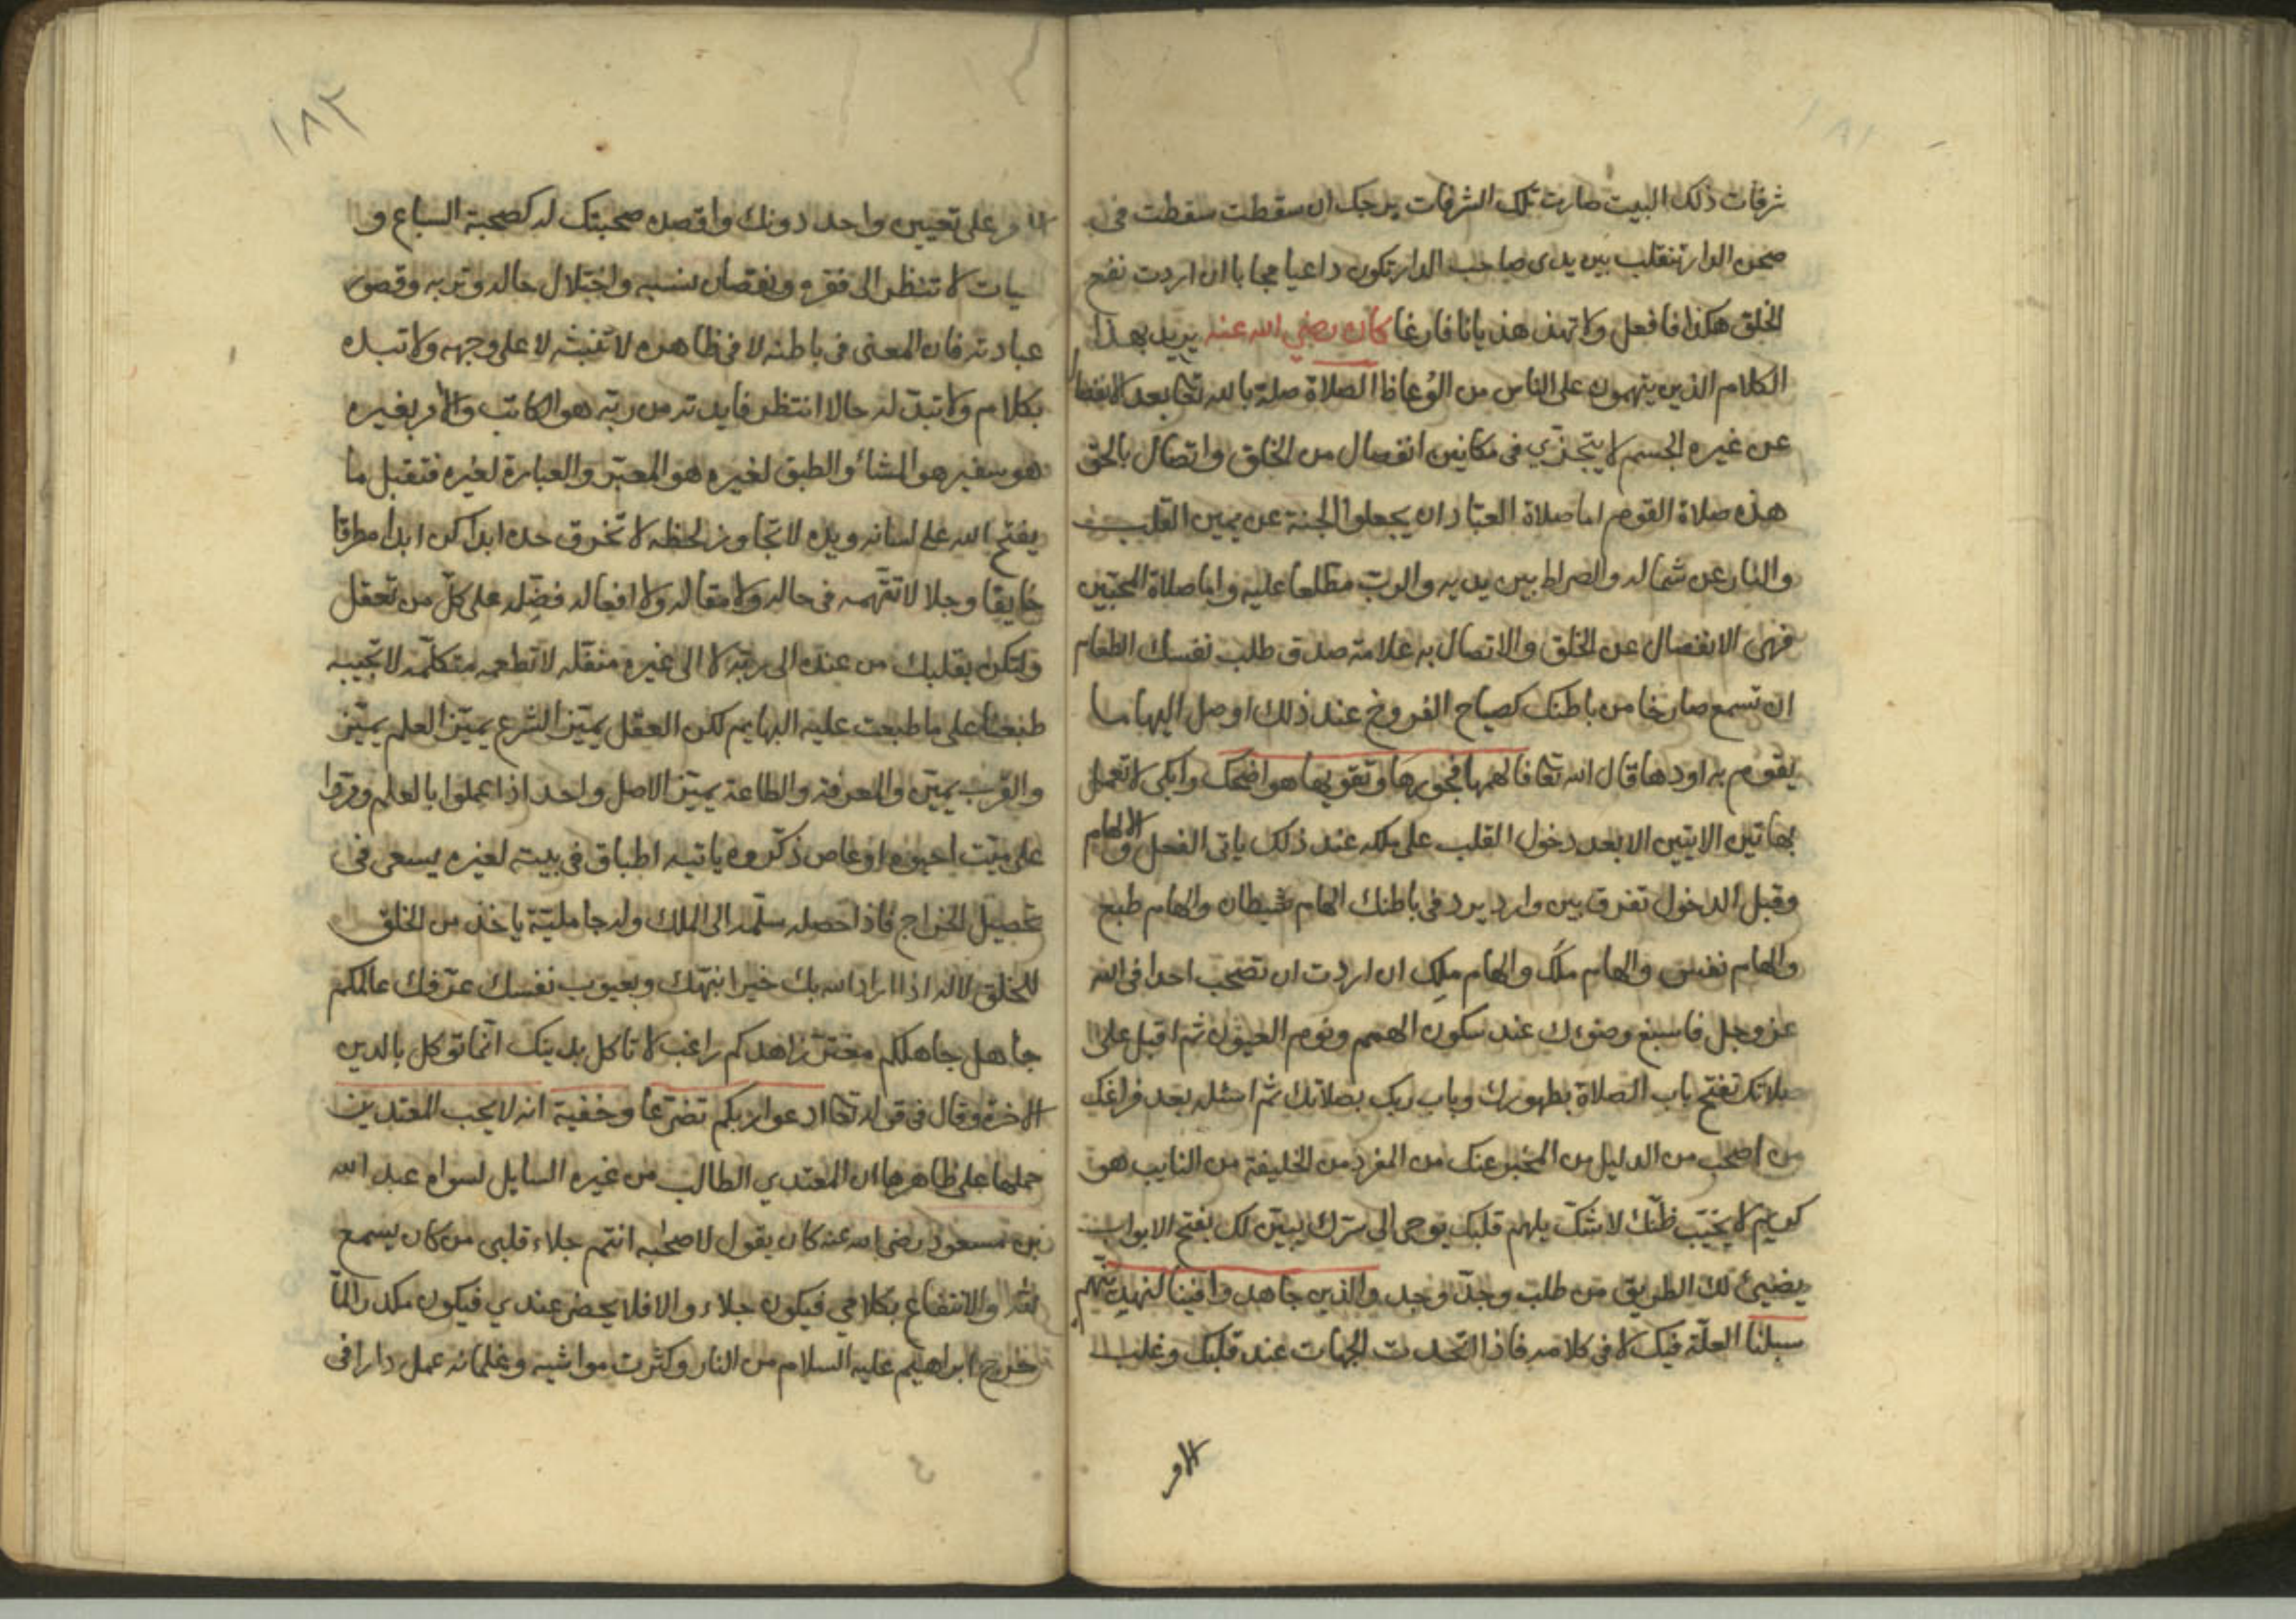 ١٨١
شرفات ذلك البيت صارت تلك الشرفات يدحبك ان سقطت سقطت في
صحن الدار تنقلب بين يدى صاحب الدار تكون داعيا مجابا ان اردت نفع
الخلق هكذا فافعل ولا تهذ هذيانا فارغا كان رضي الله عنه يريد بهذا
الكلام الذين يتهمون على الناس من الوُعاظ الصلاة صلة بالله تعا بعد الانفصال
عن غيره الجسم لا يتجزّي فى مكانين انفصال من الخلق واتصال بالحق
هذه صلاة القوم اما صلاة العبّاد ان يجعلوا الجنة عن يمين القلب
والنار عن شماله والصراط بين يديه والربّ مطلعا عليه واما صلاة المحبّين
فهى الانفصال عن الخلق والاتصال به علامة صدق طلب نفسك الطعام
ان تسمع صارخا من باطنك كصياح الفروخ عند ذلك اوصل اليها ما
يقوم به اودها قال الله تعا فالهمها فجورها وتقويها هو اضحك وابكى لا تعمل
بهاتين الايتين الا بعد دخول القلب على ملكه عند ذلك ياتى الفعل والالهام
وقبل الدخول تفرق بين وارد يرد فى باطنك الهام شيطان والهام طبع
والهام نفس والهام ملَك والهام ملِك ان اردت ان تصحب احدا فى الله
عز وجل فاسبغ وضوءك عند سكون الهمم ونوم العيون ثم اقبل على
صلاتك تفتح باب الصلاة بطهورك وباب ربك بصلاتك ثم اسئله بعد فراغك
من اصحب من الدليل من المخبر عنك من المفرد من الخليفة من النايب هو
كريم لا يخيّب ظنّك لا شكّ يلهم قلبك يوحى الى سرّك يبيّن لك يفتح الابواب
يضيئ لك الطريق من طلب وجدّ وجد والذين جاهدوا فينا لنهدينّهم
سبلنا العلّة فيك لا فى كلامه فاذا اتّحدت الجهات عند قلبك وغلب
الامر
١٨٢
الامر على تعيين واحد دونك واقصده صحبتك له كصحبة السباع و
حيات لا تنظر الى فقره ونقصان نسبه واختلال حاله وقصور
عبادته فان المعنى فى باطنه لا فى ظاهره لا على وجهه ولا تبده
بكلام ولا تبد له حالا انتظر فايدته من ربّه هو الكاتب والامر بغيره
هو سفير هو المشا والطبق لغيره هو المعبّر والعبارة لغيره فتقبل ما
يفتح الله على لسانه ويده لا تجاوز لحظه لا تخرق حده ابدا كن ابدا مطرقا
خايفا وجلا لا تتّهمه فى حاله ولا مقاله ولا افعاله فضِّله على كلّ من تعقل
ولتكن بقلبك من عنده الى ربّه لا الى غيره متكلّمه لا تجيبه
طبعنا على ما طبعت عليه البهايم لكن العقل يميّز الشرع يميّز العلم يميّز
والقرب يميّز والمعرفة والطاعة يميّز الاصل واحد اذا عملوا بالعلم ومرّوا
على ميّت احيوه او عاص ذكّروه ياتيه اطباق فى بيته لغيره يسعى فى
تحصيل الخراج فاذا حصله سلّمه الى الملك وله جامليّة ياخذ من الخلق
للخلق لا له اذا اراد الله بك خيرا نبّهك وبعيوب نفسك عرّفك عالمكم
جاهل جاهلكم مغترّ زاهدكم راغب لا تاكل بدينك انّما توكل بالدين
الاخرة وقال فى قوله تعا ادعوا ربكم تضرّعا وخفية انه لا يحب المعتدين
حملها على ظاهرها ان المعتدي الطالب من غيره السايل لسواه عبد الله
بن مسعود رضى الله عنه كان يقول لاصحابه انتم جلاء قلبى من كان يسمع
لله والانتفاع بكلامي فيكون جلاء والا فلا يحضر عندي فيكون مكدرا لمّا
خرج ابراهيم عليه السلام من النار وكثرت مواشيه وغلمانه عمل دارا فى